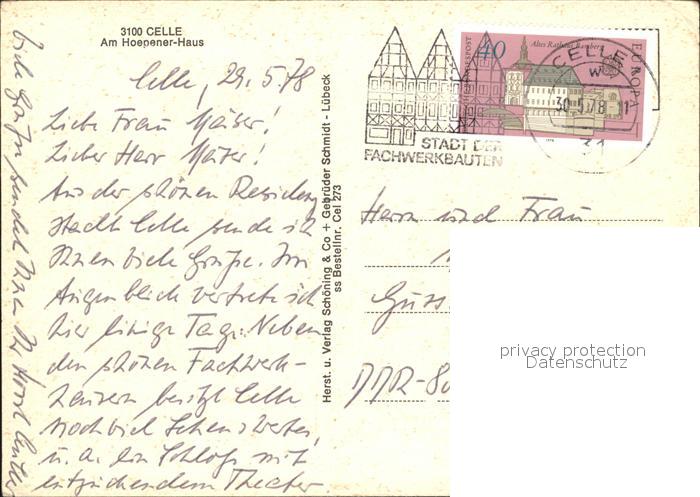 3100 CELLE
Am Hoepener-Haus
Celle, 29.5.78
Liebe Frau
Lieber Herr
Aus der schönen Residenz
stadt Celle sende ich
Ihnen viele Grüße. Im
Augenblick vertrete ich
hier einige Tage. Neben
den schönen Fachwerk-
häusern besitzt Celle
noch viel Sehenswertes,
u. a. ein Schloß mit
entzückendem Theater.
Viele Grüße sendet Ihnen Ihr Horst
Herst. u. Verlag Schöning & Co + Gebrüder Schmidt - Lübeck
ss Bestellnr. Cel 273
STADT DER
FACHWERKBAUTEN
40
Altes Rathaus Bamberg
EUROPA
BUNDESPOST
CELLE
30.5.78
31
Herrn und Frau
DDR-80
privacy protection
Datenschutz